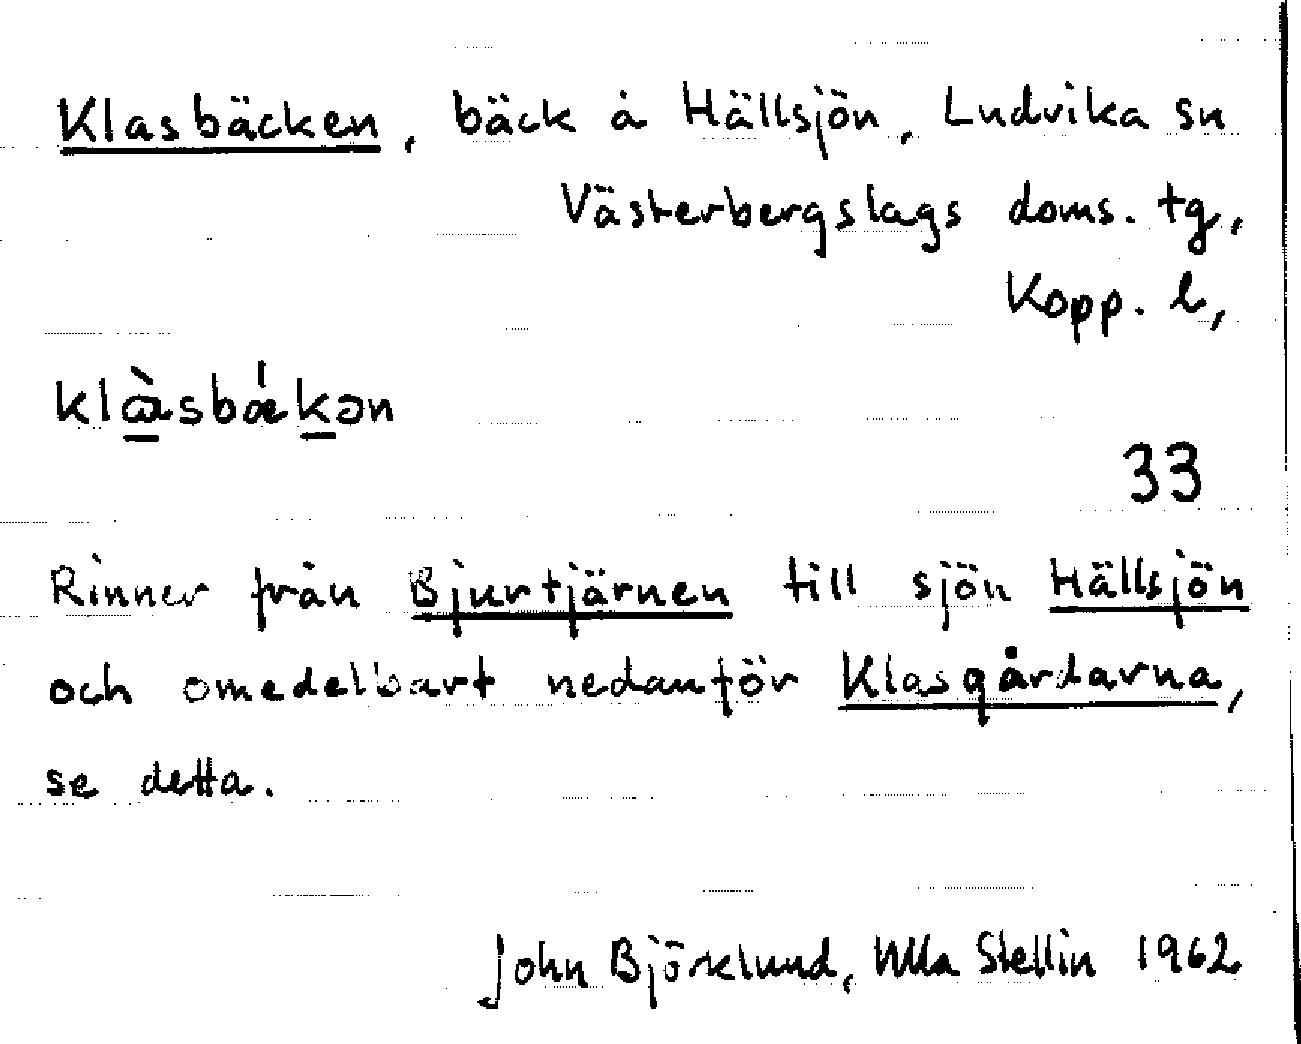 Klasbäcken, bäck å Hällsjön, Ludvika sn
Västerbergslags doms. tg,
Kopp. l,
klæ̀sbǽkən
33
Rinner från Bjurtjärnen till sjön Hällsjön
och omedelbart nedanför Klasgårdarna,
se detta.
John Björklund, Ulla Stellin 1962